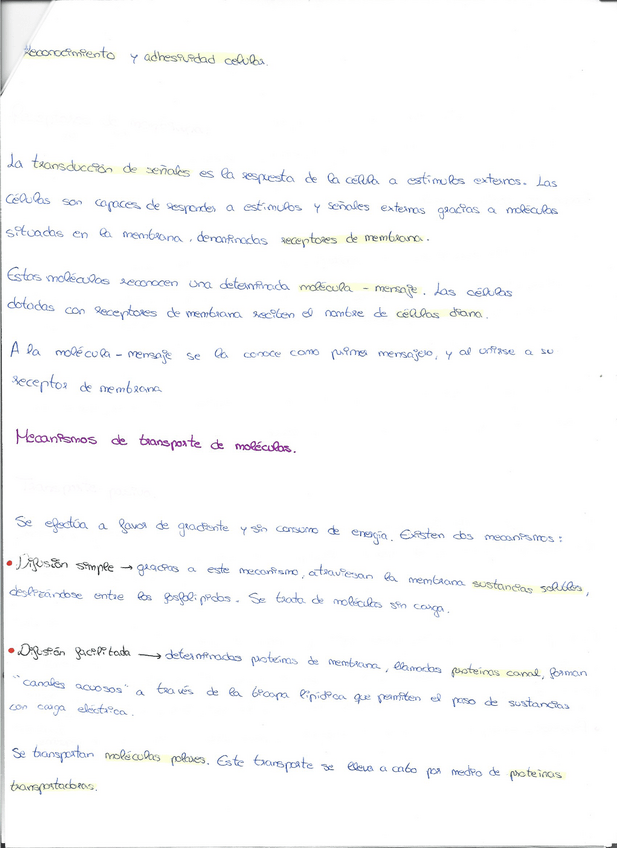 Reconocimiento y adhesividad celular.
La transducción de señales es la respuesta de la célula a estímulos externos. Las
células son capaces de responder a estímulos y señales externas gracias a moléculas
situadas en la membrana, denominadas receptores de membrana.
Estas moléculas reconocen una determinada molécula - mensaje. Las células
dotadas con receptores de membrana reciben el nombre de células diana.
A la molécula - mensaje se la conoce como primer mensajero, y al unirse a su
receptor de membrana
Mecanismos de transporte de moléculas.
Se efectúa a favor de gradiente y sin consumo de energía. Existen dos mecanismos:
• Difusión simple → gracias a este mecanismo, atraviesan la membrana sustancias solubles,
deslizándose entre los fosfolípidos. Se trata de moléculas sin carga.
• Difusión facilitada → determinadas proteínas de membrana, llamadas proteínas canal, forman
"canales acuosos" a través de la bicapa lipídica que permiten el paso de sustancias
con carga eléctrica.
Se transportan moléculas polares. Este transporte se lleva a cabo por medio de proteínas
transportadoras.